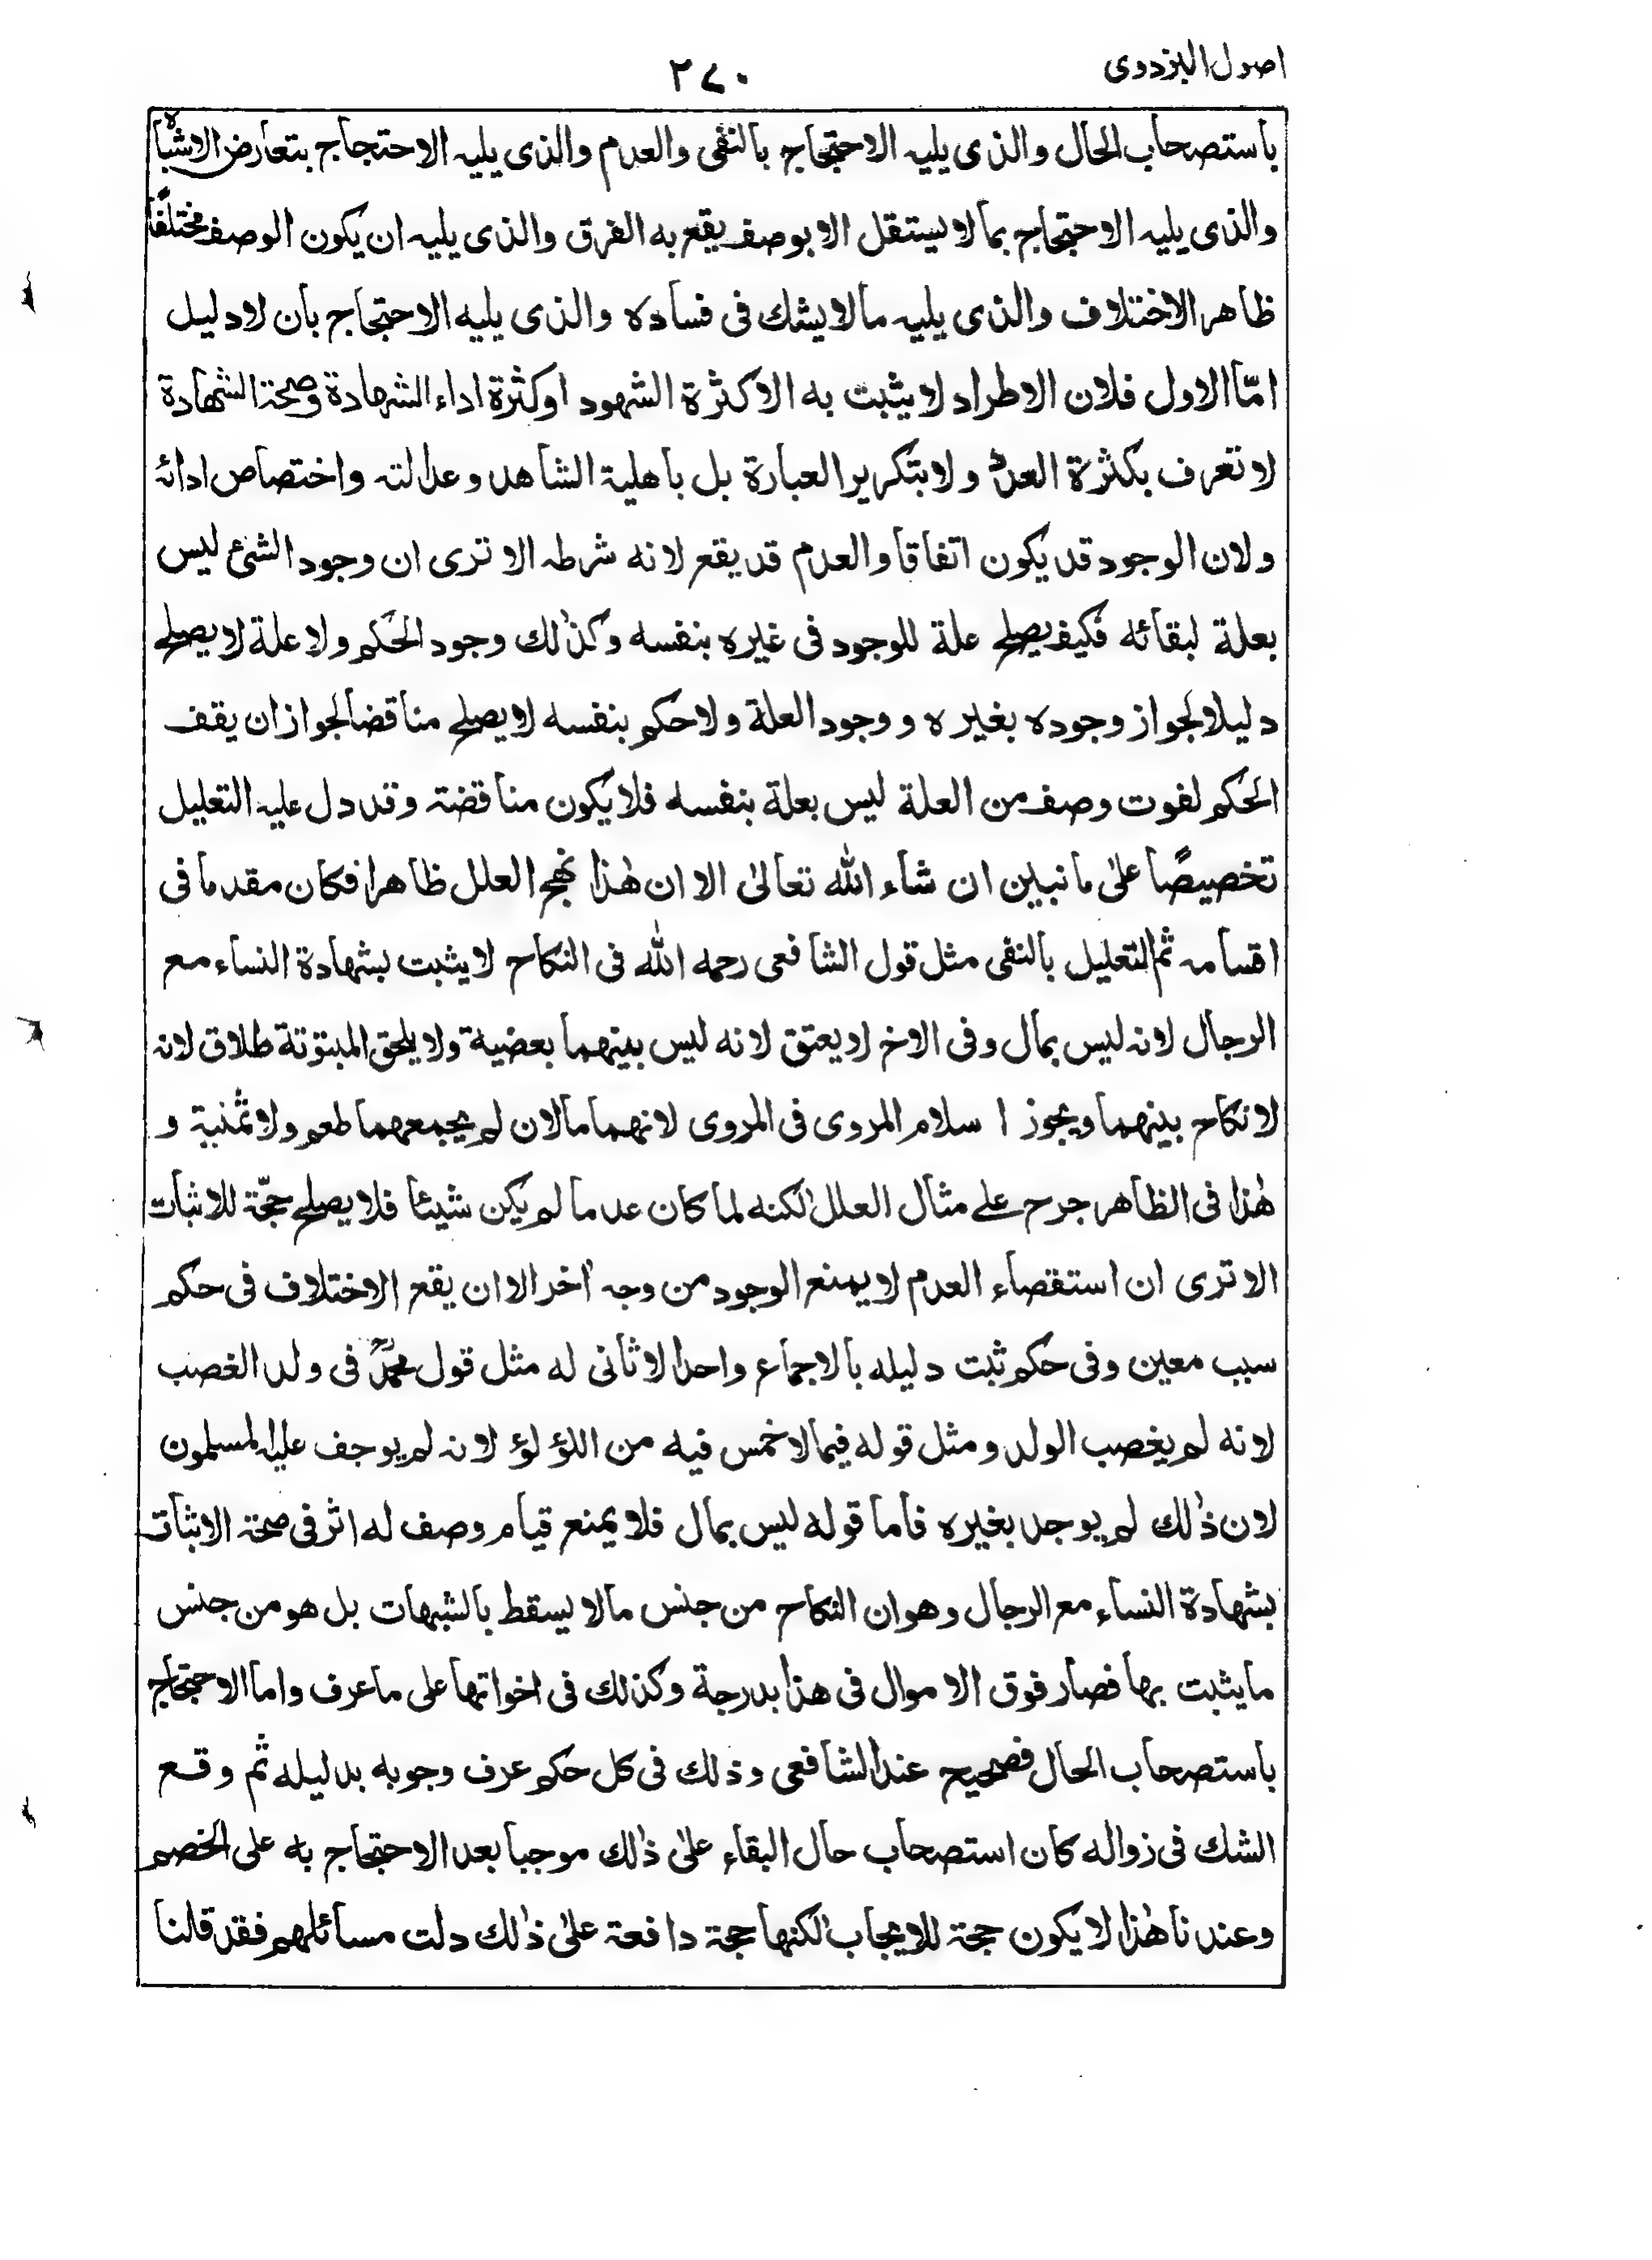 اصول البزدوى
٢٧٠
باستصحاب الحال والذى يليه الاحتجاج بالنفى والعدم والذى يليه الاحتجاج بتعارض الاشباه
والذى يليه الاحتجاج بما لا يستقل الا بوصف يقع به الفرق والذى يليه ان يكون الوصف مختلفًا
ظاهر الاختلاف والذى يليه مالا يشك فى فساده والذى يليه الاحتجاج بان لا دليل
امّا الاول فلان الاطراد لا يثبت به الا كثرة الشهود او كثرة اداء الشهادة وصحة الشهادة
لا تعرف بكثرة العدد ولا بتكرير العبارة بل باهلية الشاهد وعدالته واختصاص ادائه
ولان الوجود قد يكون اتفاقا والعدم قد يقع لانه شرطه الا ترى ان وجود الشئ ليس
بعلة لبقائه فكيف يصلح علة للوجود فى غيره بنفسه وكذٰلك وجود الحكم ولا علة لا يصلح
دليلا لجواز وجوده بغيره ووجود العلة ولا حكم بنفسه لا يصلح مناقضا لجواز ان يقف
الحكم لفوت وصف من العلة ليس بعلة بنفسه فلا يكون مناقضة وقد دل عليه التعليل
تخصيصًا علىٰ ما نبين ان شاء الله تعالىٰ الا ان هٰذا نهج العلل ظاهرا فكان مقدما فى
اقسامه ثم التعليل بالنفى مثل قول الشافعى رحمه الله فى النكاح لا يثبت بشهادة النساء مع
الرجال لانه ليس بمال وفى الاخ لا يعتق لانه ليس بينهما بعضية ولا يلحق المبتوتة طلاق لانه
لا نكاح بينهما ويجوز اسلام المروى فى المروى لانهما مالان لم يجمعهما طعم ولا ثمنية و
هٰذا فى الظاهر جرح على مثال العلل لٰكنه لما كان عدما لم يكن شيئا فلا يصلح حجّة للاثبات
الا ترى ان استقصاء العدم لا يمنع الوجود من وجه اٰخر الا ان يقع الاختلاف فى حكم
سبب معين وفى حكم ثبت دليله بالاجماع واحدا لا ثانى له مثل قول محمدؒ فى ولد الغصب
لانه لم يغصب الولد ومثل قوله فيما لا خمس فيه من اللؤلؤ لانه لم يوجف عليه المسلمون
لان ذٰلك لم يوجد بغيره فاما قوله ليس بمال فلا يمنع قيام وصف له اثر فى صحة الاثبات
بشهادة النساء مع الرجال وهو ان النكاح من جنس مالا يسقط بالشبهات بل هو من جنس
ما يثبت بها فصار فوق الاموال فى هذا بدرجة وكذلك فى اخواتها على ما عرف واما الاحتجاج
باستصحاب الحال فصحيح عند الشافعى وذلك فى كل حكم عرف وجوبه بدليله ثم وقع
الشك فى زواله كان استصحاب حال البقاء علىٰ ذٰلك موجبا بعد الاحتجاج به على الخصم
وعندنا هٰذا لا يكون حجة للايجاب لٰكنها حجة دافعة علىٰ ذٰلك دلت مسائلهم فقد قلنا